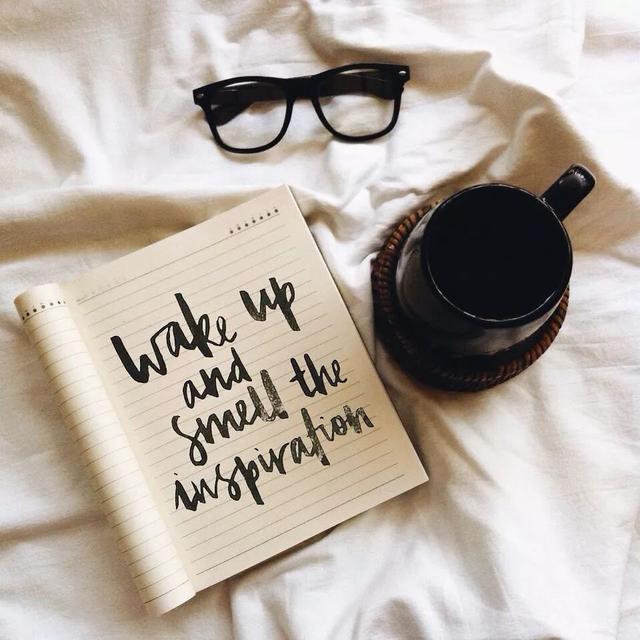 wake up
and
smell the
inspiration